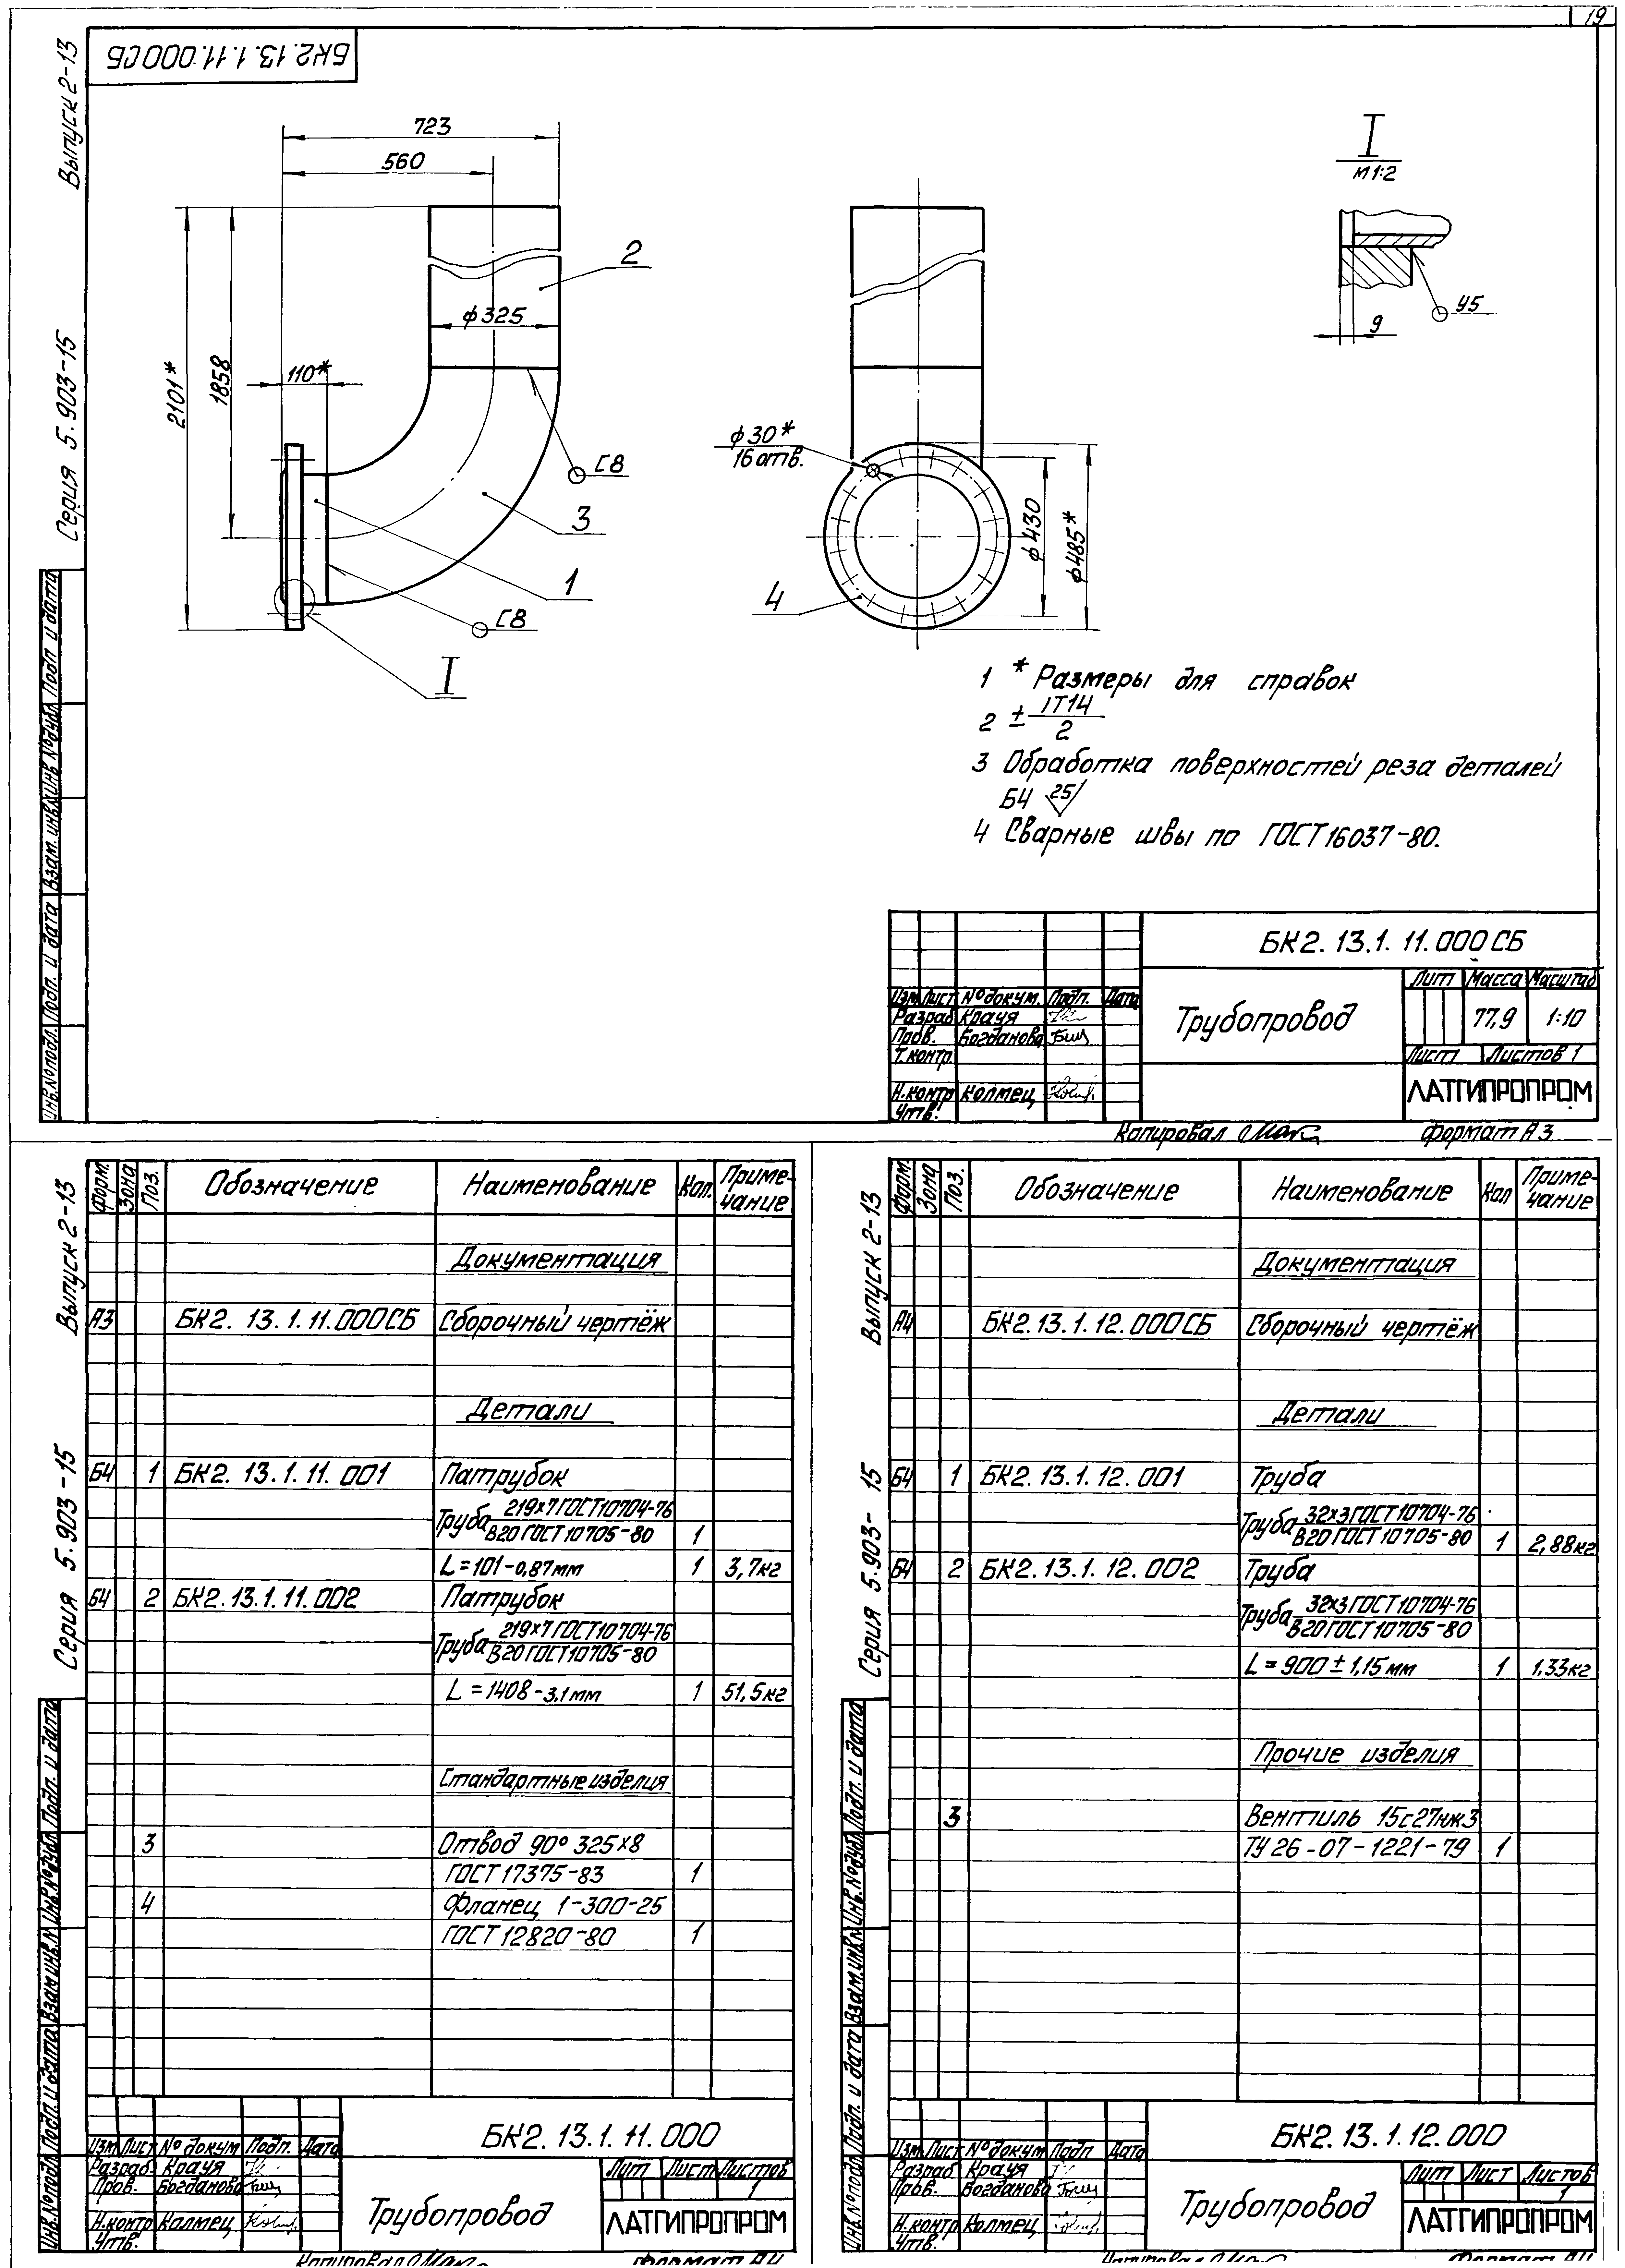 19
БК2.13.1.11.000СБ
Выпуск 2-13
Серия 5.903-15
723
560
2101*
1858
110*
ф325
2
С8
3
1
С8
I
ф30*
16 отв.
ф430
ф485*
4
I
М 1:2
У5
9
1 * Размеры для справок
2 ± IT14/2
3 Обработка поверхностей реза деталей
БЧ 25
4 Сварные швы по ГОСТ 16037-80.
Инв.№подл. Подп. и дата Взам. инв.№ Инв.№дубл. Подп и дата
БК2.13.1.11.000СБ
Трубопровод
Лит Масса Масштаб
77,9 1:10
Лист Листов 1
ЛАТГИПРОПРОМ
Изм Лист №докум. Подп. Дата
Разраб Крауя
Пров. Богданова
Т.контр
Н.контр Колмец
Утв.
Копировал
Формат А3
Выпуск 2-13
Серия 5.903-15
Форм. Зона Поз. Обозначение Наименование Кол. Приме-
чание
Документация
А3 БК2.13.1.11.000СБ Сборочный чертёж
Детали
БЧ 1 БК2.13.1.11.001 Патрубок
Труба 219х7 ГОСТ 10704-76
В20 ГОСТ 10705-80 1
L=101-0,87мм 1 3,7кг
БЧ 2 БК2.13.1.11.002 Патрубок
Труба 219х7 ГОСТ 10704-76
В20 ГОСТ 10705-80
L=1408-3,1мм 1 51,5кг
Стандартные изделия
3 Отвод 90° 325х8
ГОСТ 17375-83 1
4 Фланец 1-300-25
ГОСТ 12820-80 1
Инв.№подл. Подп. и дата Взам инв.№ Инв.№дубл Подп. и дата
БК2.13.1.11.000
Изм Лист №докум Подп. Дата
Разраб. Крауя
Пров. Богданова
Н.контр Колмец
Утв.
Трубопровод
Лит Лист Листов
1
ЛАТГИПРОПРОМ
Копировал
Формат А4
Выпуск 2-13
Серия 5.903-15
Форм. Зона Поз. Обозначение Наименование Кол Приме-
чание
Документация
А4 БК2.13.1.12.000СБ Сборочный чертёж
Детали
БЧ 1 БК2.13.1.12.001 Труба
Труба 32х3 ГОСТ 10704-76
В20 ГОСТ 10705-80 1 2,88кг
БЧ 2 БК2.13.1.12.002 Труба
Труба 32х3 ГОСТ 10704-76
В20 ГОСТ 10705-80
L=900±1,15мм 1 1,33кг
Прочие изделия
3 Вентиль 15с27нж3
ТУ 26-07-1221-79 1
Инв.№подл Подп. и дата Взам.инв.№ Инв.№дубл Подп. и дата
БК2.13.1.12.000
Изм Лист №докум Подп Дата
Разраб Крауя
Пров. Богданова
Н.контр Колмец
Утв.
Трубопровод
Лит Лист Листов
1
ЛАТГИПРОПРОМ
Копировал
Формат А4